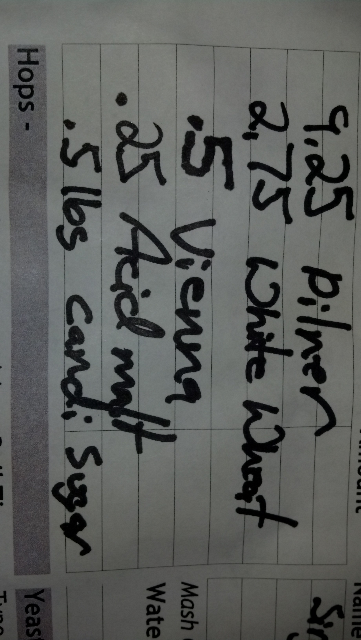 9.25 pilner
2.75 White Wheat
.5 Vienna
.25 Acid malt
.5 lbs candi Sugar
Hops -
Mash
Wate
Yeas